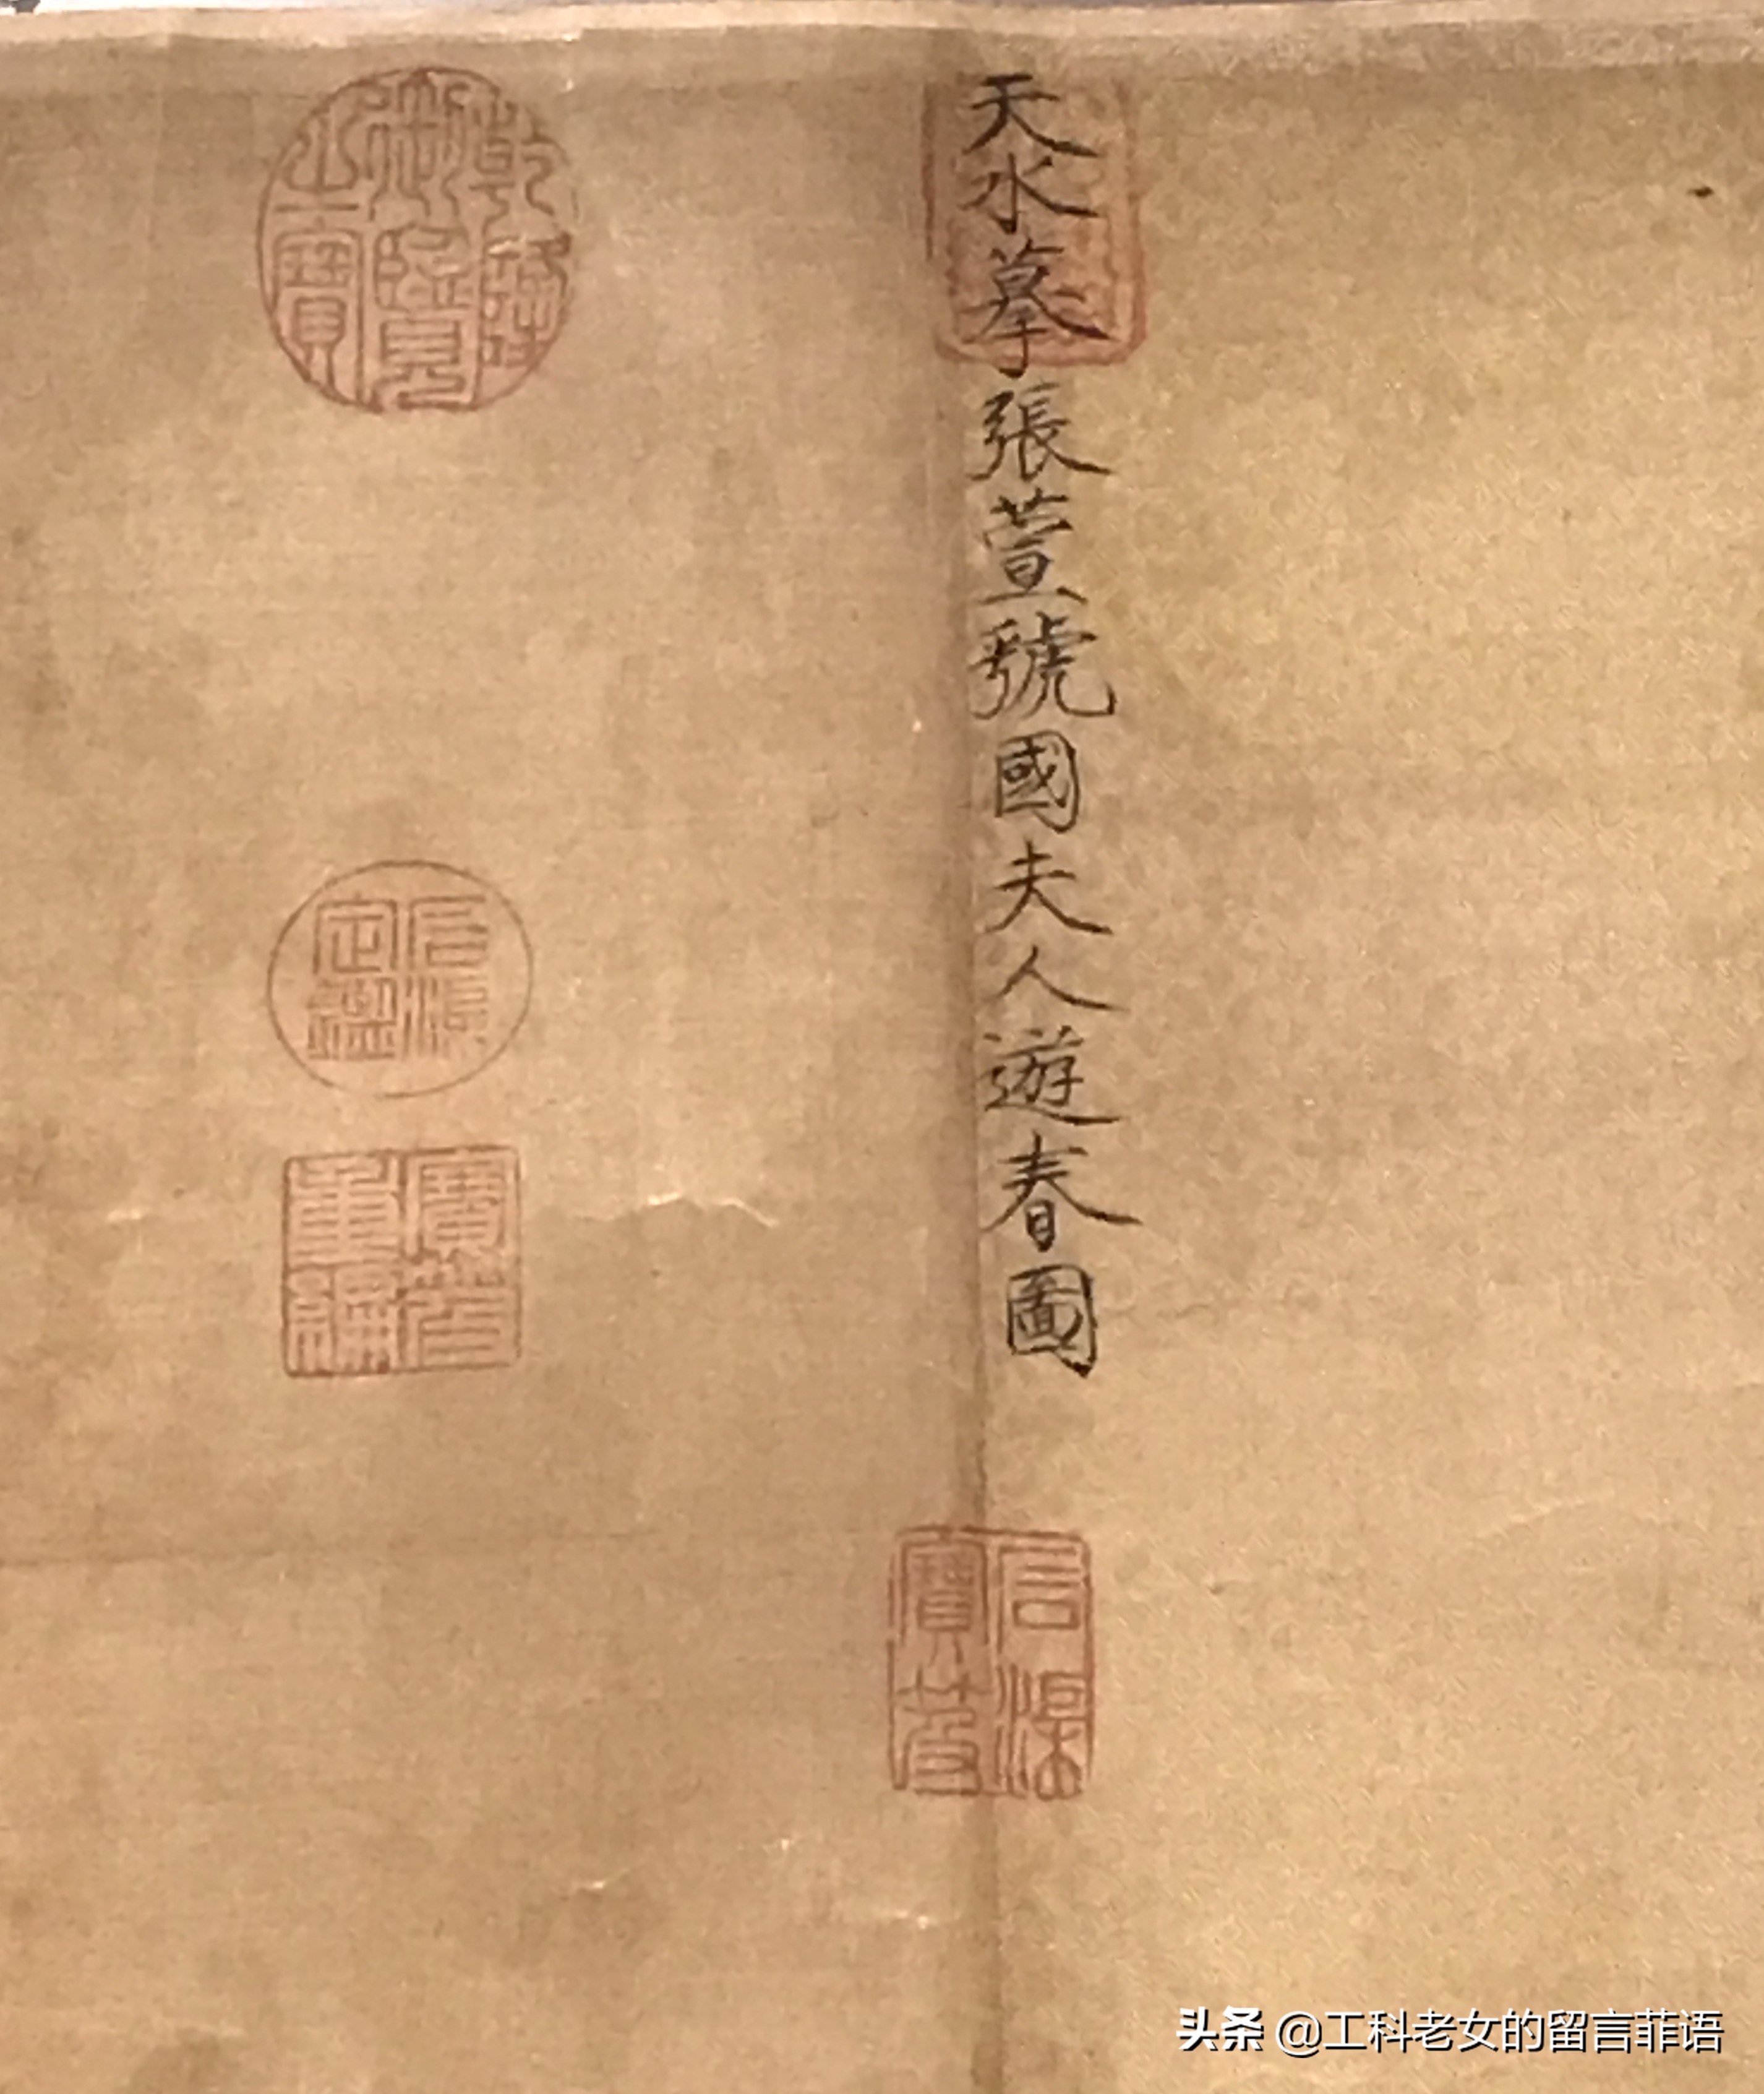 天水摹張萱虢國夫人遊春圖
石渠
寶笈
乾隆
御覽
之寶
石渠
定鑑
寶笈
重編
头条 @工科老女的留言菲语